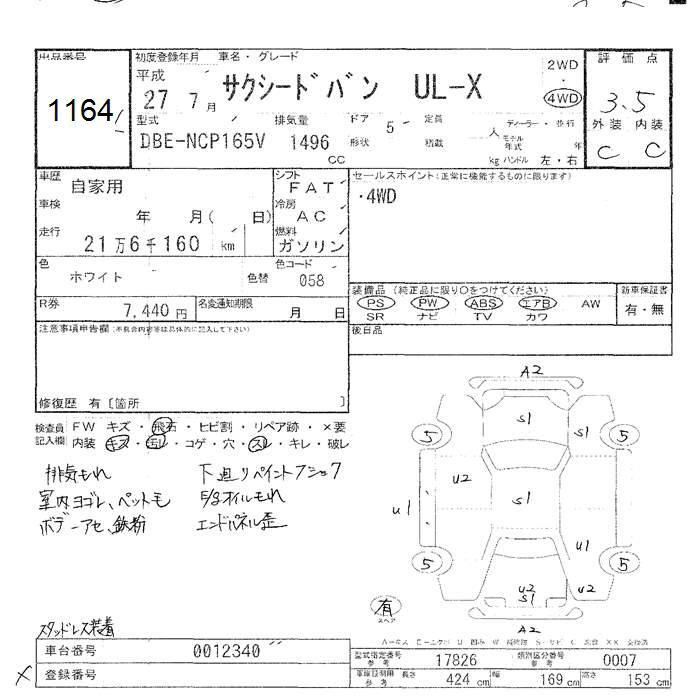 出品番号
1164
初度登録年月 車名・グレード
平成
27 7月
サクシードバン UL-X
2WD
・
4WD
評価点
3.5
外装 内装
C C
型式
DBE-NCP165V
排気量
1496
CC
ドア 5 定員
形状 積載
人
kg
ディーラー・並行
モデル年式 年
ハンドル 左・右
車歴
自家用
車検
年 月( 日)
走行
21万6千160 km
シフト
FAT
冷房
AC
燃料
ガソリン
セールスポイント(正常に機能するものに限ります)
・4WD
色
ホワイト
色替
色コード
058
R券
7,440円
名変通知期限
月 日
装備品(純正品に限り○をつけてください)
PS PW ABS エアB AW
SR ナビ TV カワ
新車保証書
有・無
後日品
注意事項申告欄(不具合内容等は具体的に記入して下さい)
修復歴 有〔箇所 〕
検査員記入欄
FW キズ・飛石・ヒビ割・リペア跡・×要
内装 キズ・汚レ・コゲ・穴・スレ・キレ・破レ
排気もれ
室内ヨゴレ、ペットモ
ボデーアセ、鉄粉
下廻りペイント
オイルもれ
エンドパネル歪
A2
S1
S1
5
5
U2
S1
U1
U1
5
5
U2
S1
U2
A2
有
スペア
スタッドレス装着
車台番号 0012340
登録番号
×
型式指定番号
参考
17826
類別区分番号
参考
0007
車検証記載用
参考
長さ
424 cm
幅
169 cm
高さ
153 cm